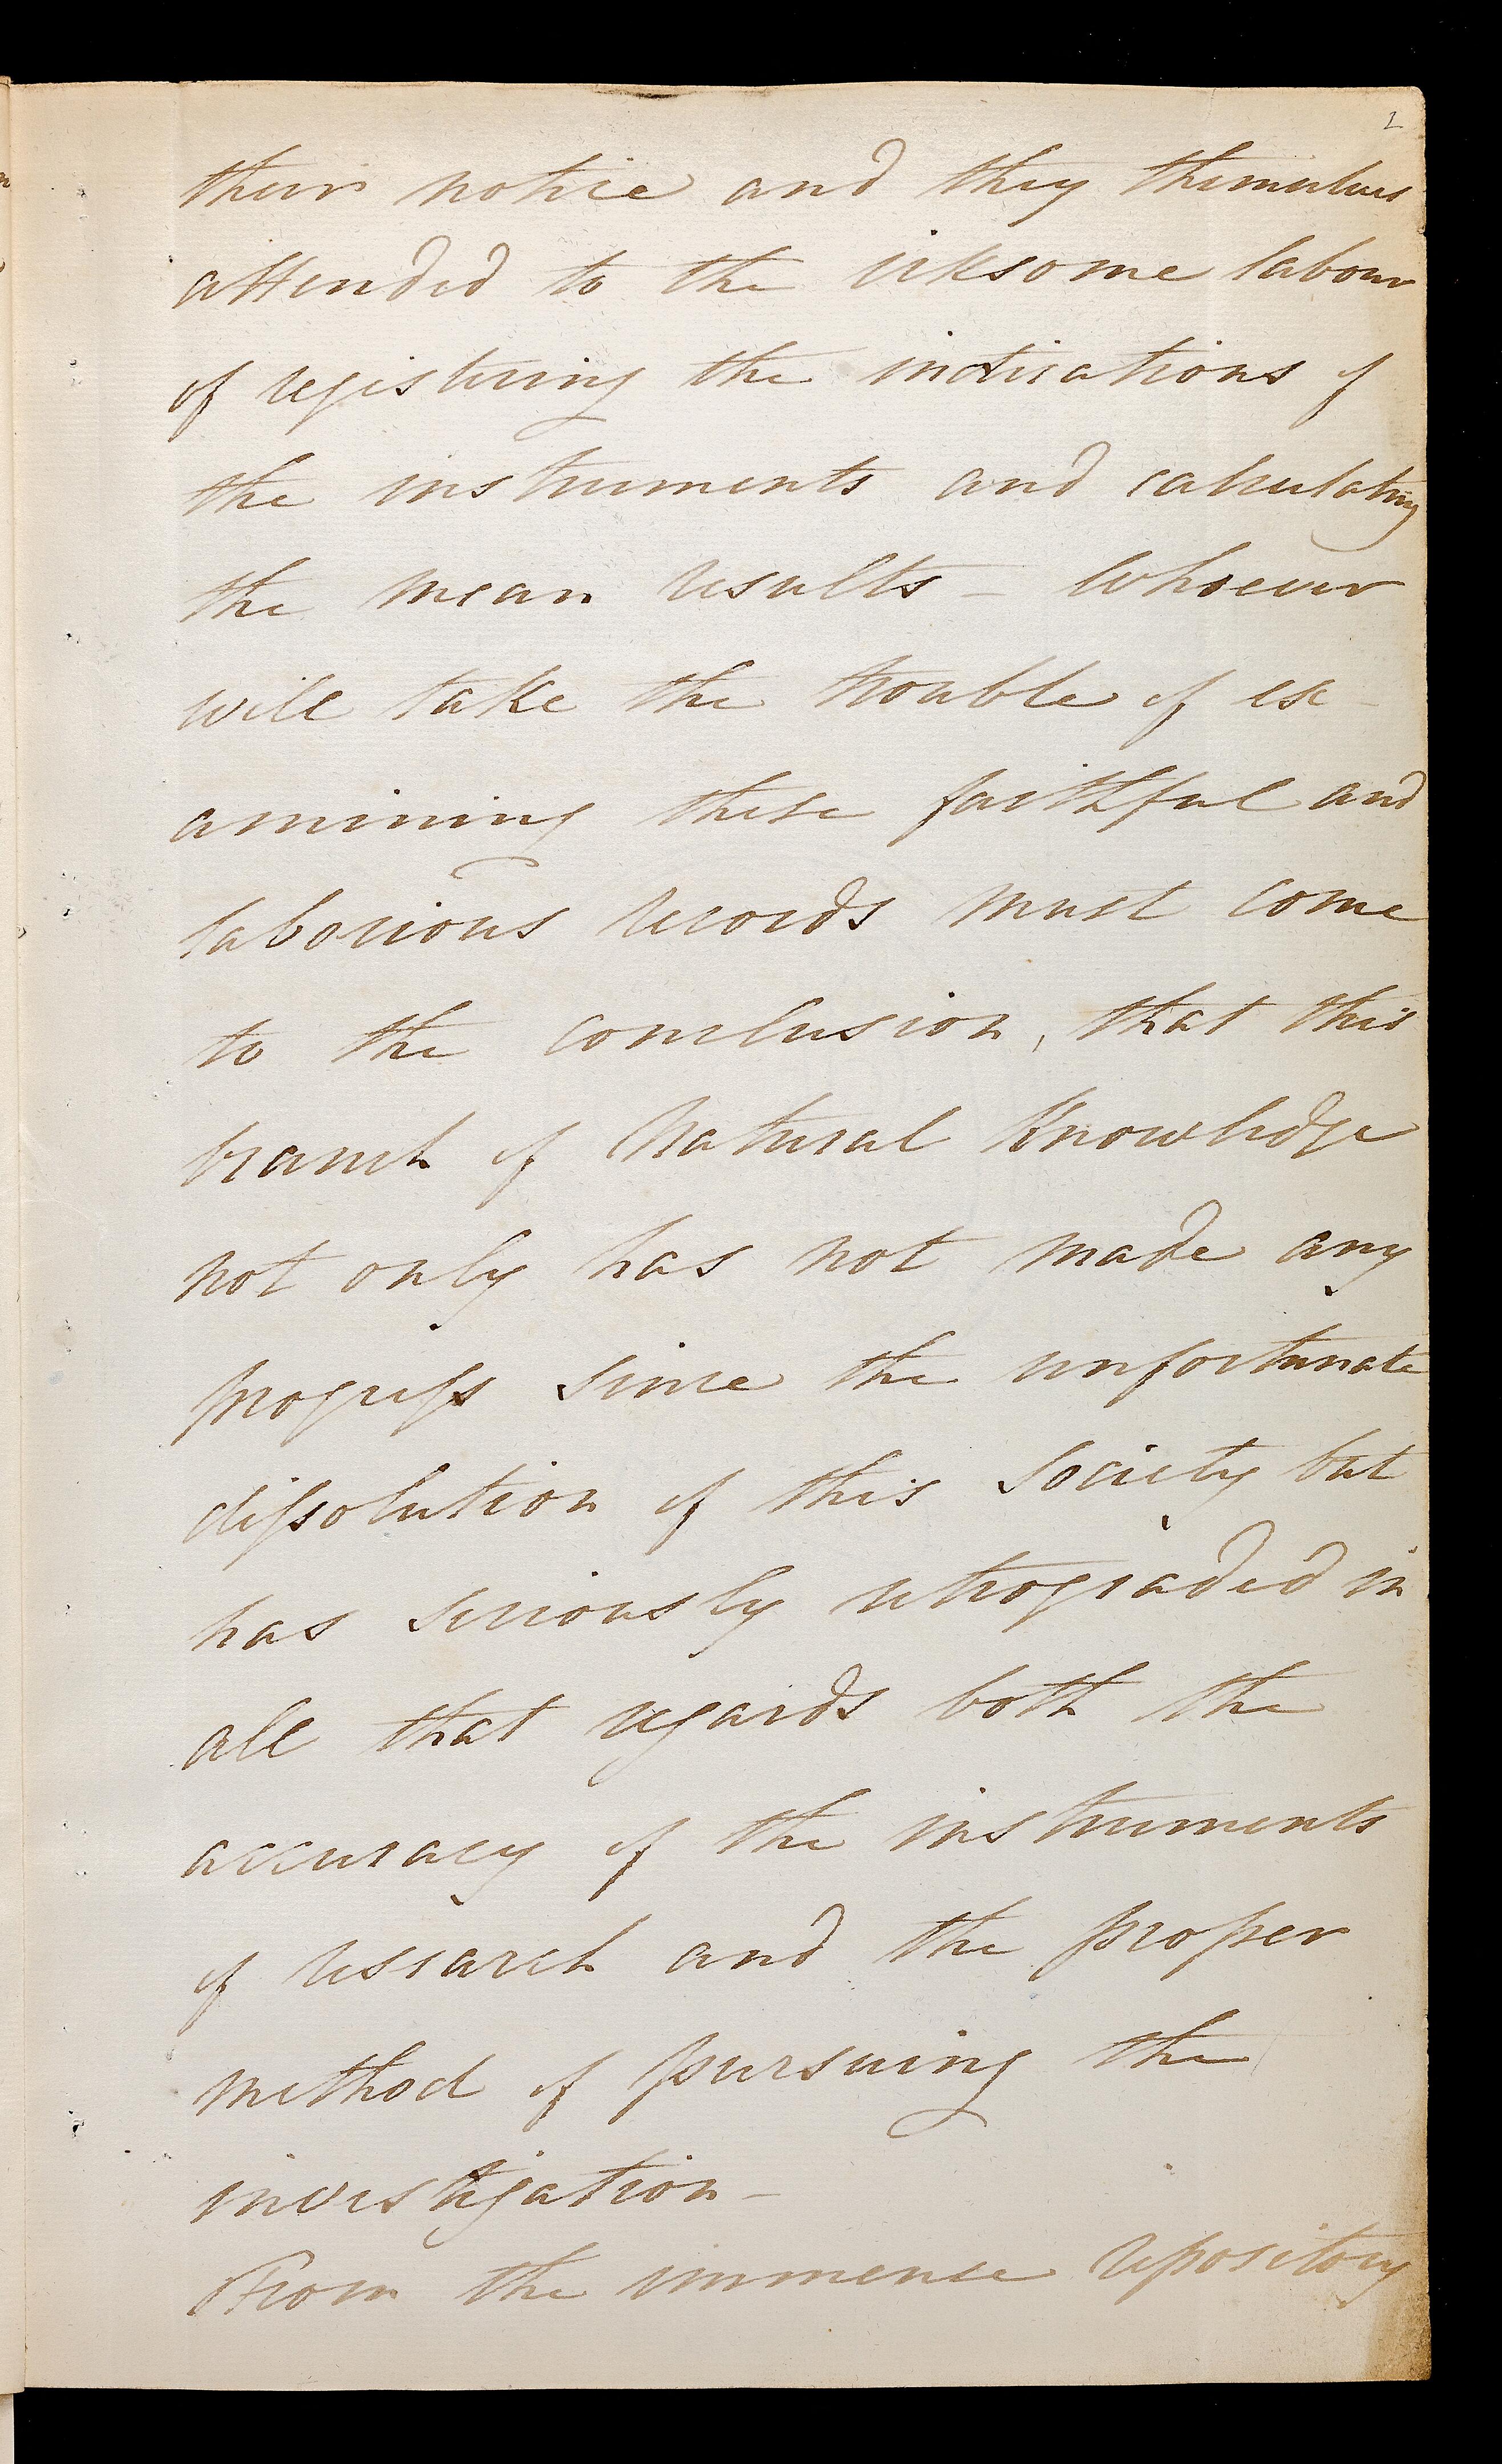 2
their notice and they themselves
attended to the irksome labour
of registering the indications of
the instruments and calculating
the mean results – Whoever
will take the trouble of ex-
amining these faithful and
laborious records must come
to the conclusion, that this
branch of Natural Knowledge
not only has not made any
progreſs since the unfortunate
diſsolution of this Society but
has seriously retrograded in
all that regards both the
accuracy of the instruments
of research and the proper
method of pursuing the
investigation –
From the immense repository